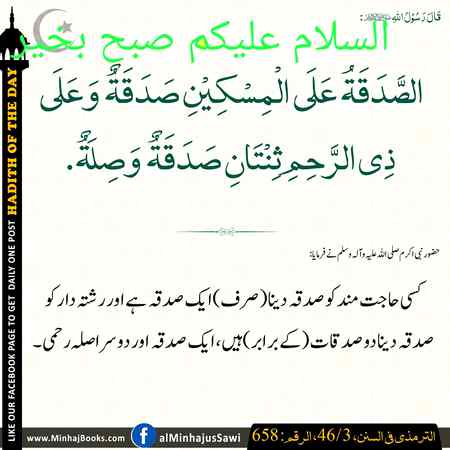 قَالَ رَسُوْلُ اللهِ ﷺ:
السلام عليكم صبح بخير
الصَّدَقَةُ عَلَى الْمِسْكِيْنِ صَدَقَةٌ وَعَلَى
ذِى الرَّحِمِ ثِنْتَانِ صَدَقَةٌ وَصِلَةٌ.
حضور نبی اکرم صلی اللہ علیہ وآلہ وسلم نے فرمایا:
کسی حاجت مند کو صدقہ دینا (صرف) ایک صدقہ ہے اور رشتہ دار کو
صدقہ دینا دو صدقات (کے برابر) ہیں، ایک صدقہ اور دوسرا صلہ رحمی۔
LIKE OUR FACEBOOK PAGE TO GET DAILY ONE POST HADITH OF THE DAY
www.MinhajBooks.com
f alMinhajusSawi
الترمذی فی السنن، 46/3، الرقم: 658